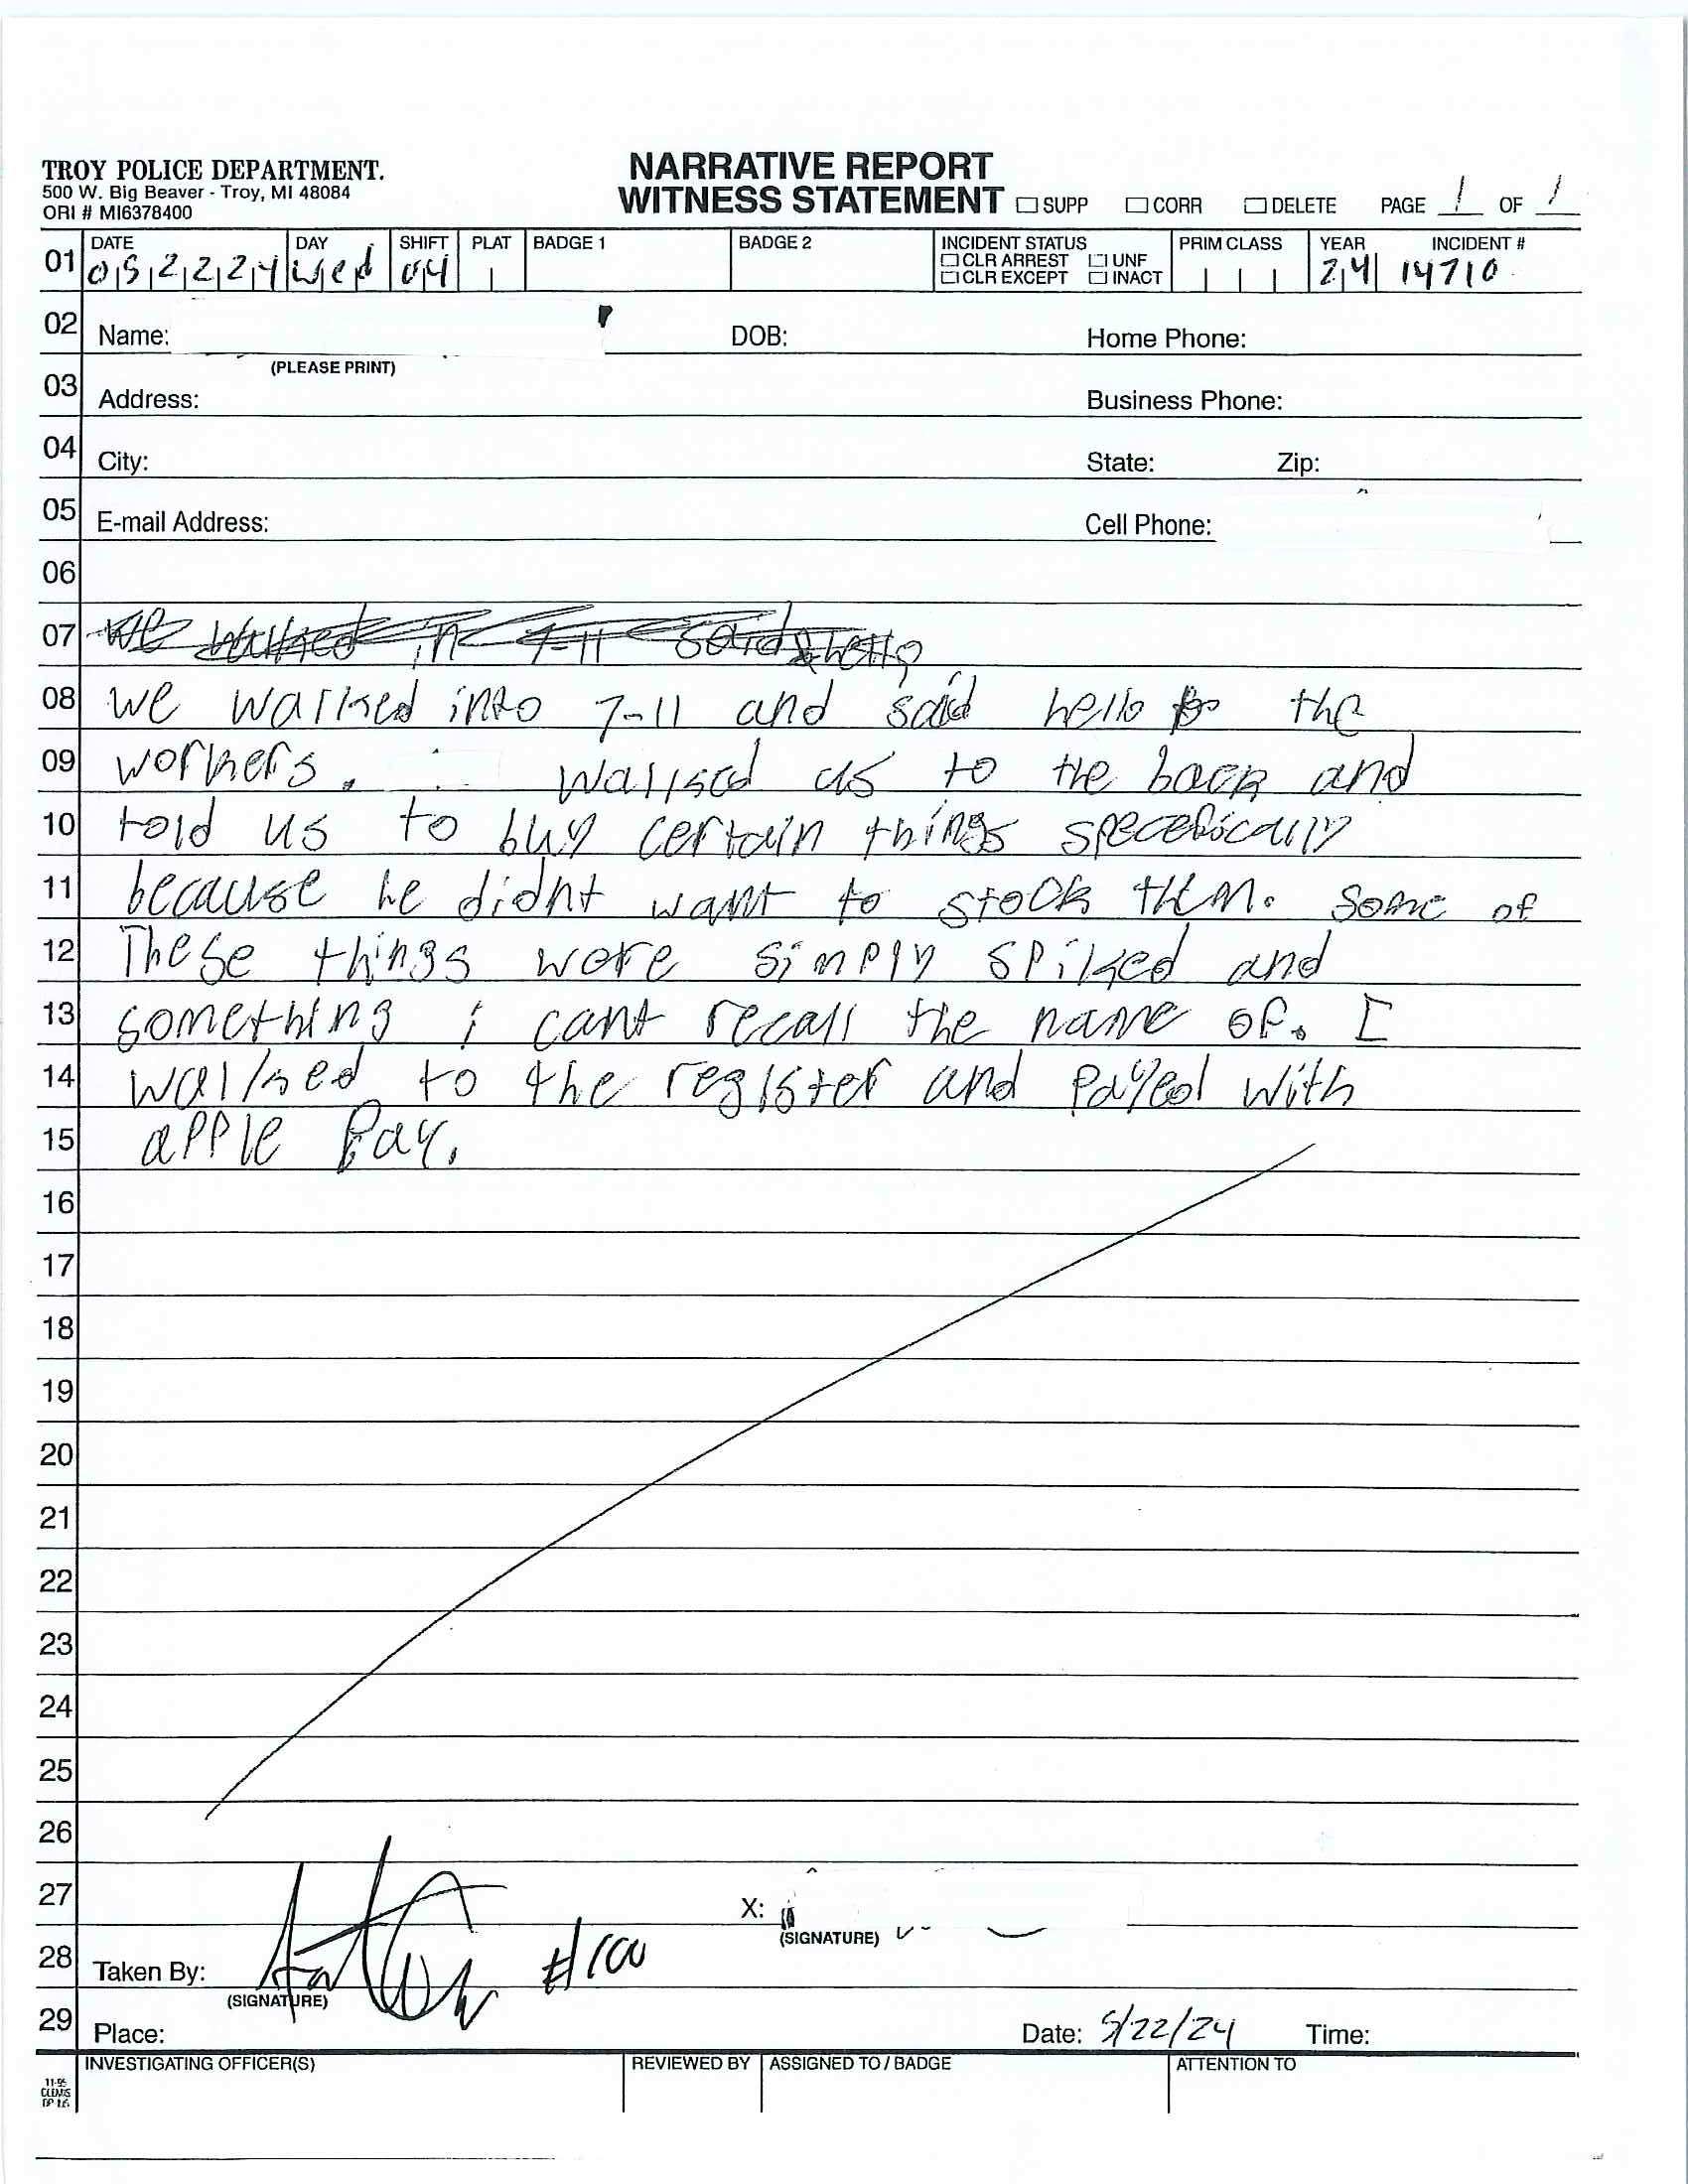 TROY POLICE DEPARTMENT.
500 W. Big Beaver - Troy, MI 48084
ORI # MI6378400
NARRATIVE REPORT
WITNESS STATEMENT ☐ SUPP ☐ CORR ☐ DELETE PAGE 1 OF 1
01 DATE DAY SHIFT PLAT BADGE 1 BADGE 2 INCIDENT STATUS PRIM CLASS YEAR INCIDENT #
☐ CLR ARREST ☐ UNF
☐ CLR EXCEPT ☐ INACT
052224 Wed 04 24 14710
02 Name: DOB: Home Phone:
(PLEASE PRINT)
03 Address: Business Phone:
04 City: State: Zip:
05 E-mail Address: Cell Phone:
06
07 We walked in 7-11 said hello
08 we walked into 7-11 and said hello to the
09 workers. walked us to the back and
10 told us to buy certain things specefically
11 because he didnt want to stock them. some of
12 These things were simply spiked and
13 something i cant recall the name of. I
14 walked to the register and payed with
15 apple Pay.
16
17
18
19
20
21
22
23
24
25
26
27 X:
(SIGNATURE)
28 Taken By: #100
(SIGNATURE)
29 Place: Date: 5/22/24 Time:
INVESTIGATING OFFICER(S) REVIEWED BY ASSIGNED TO / BADGE ATTENTION TO
CLEMIS